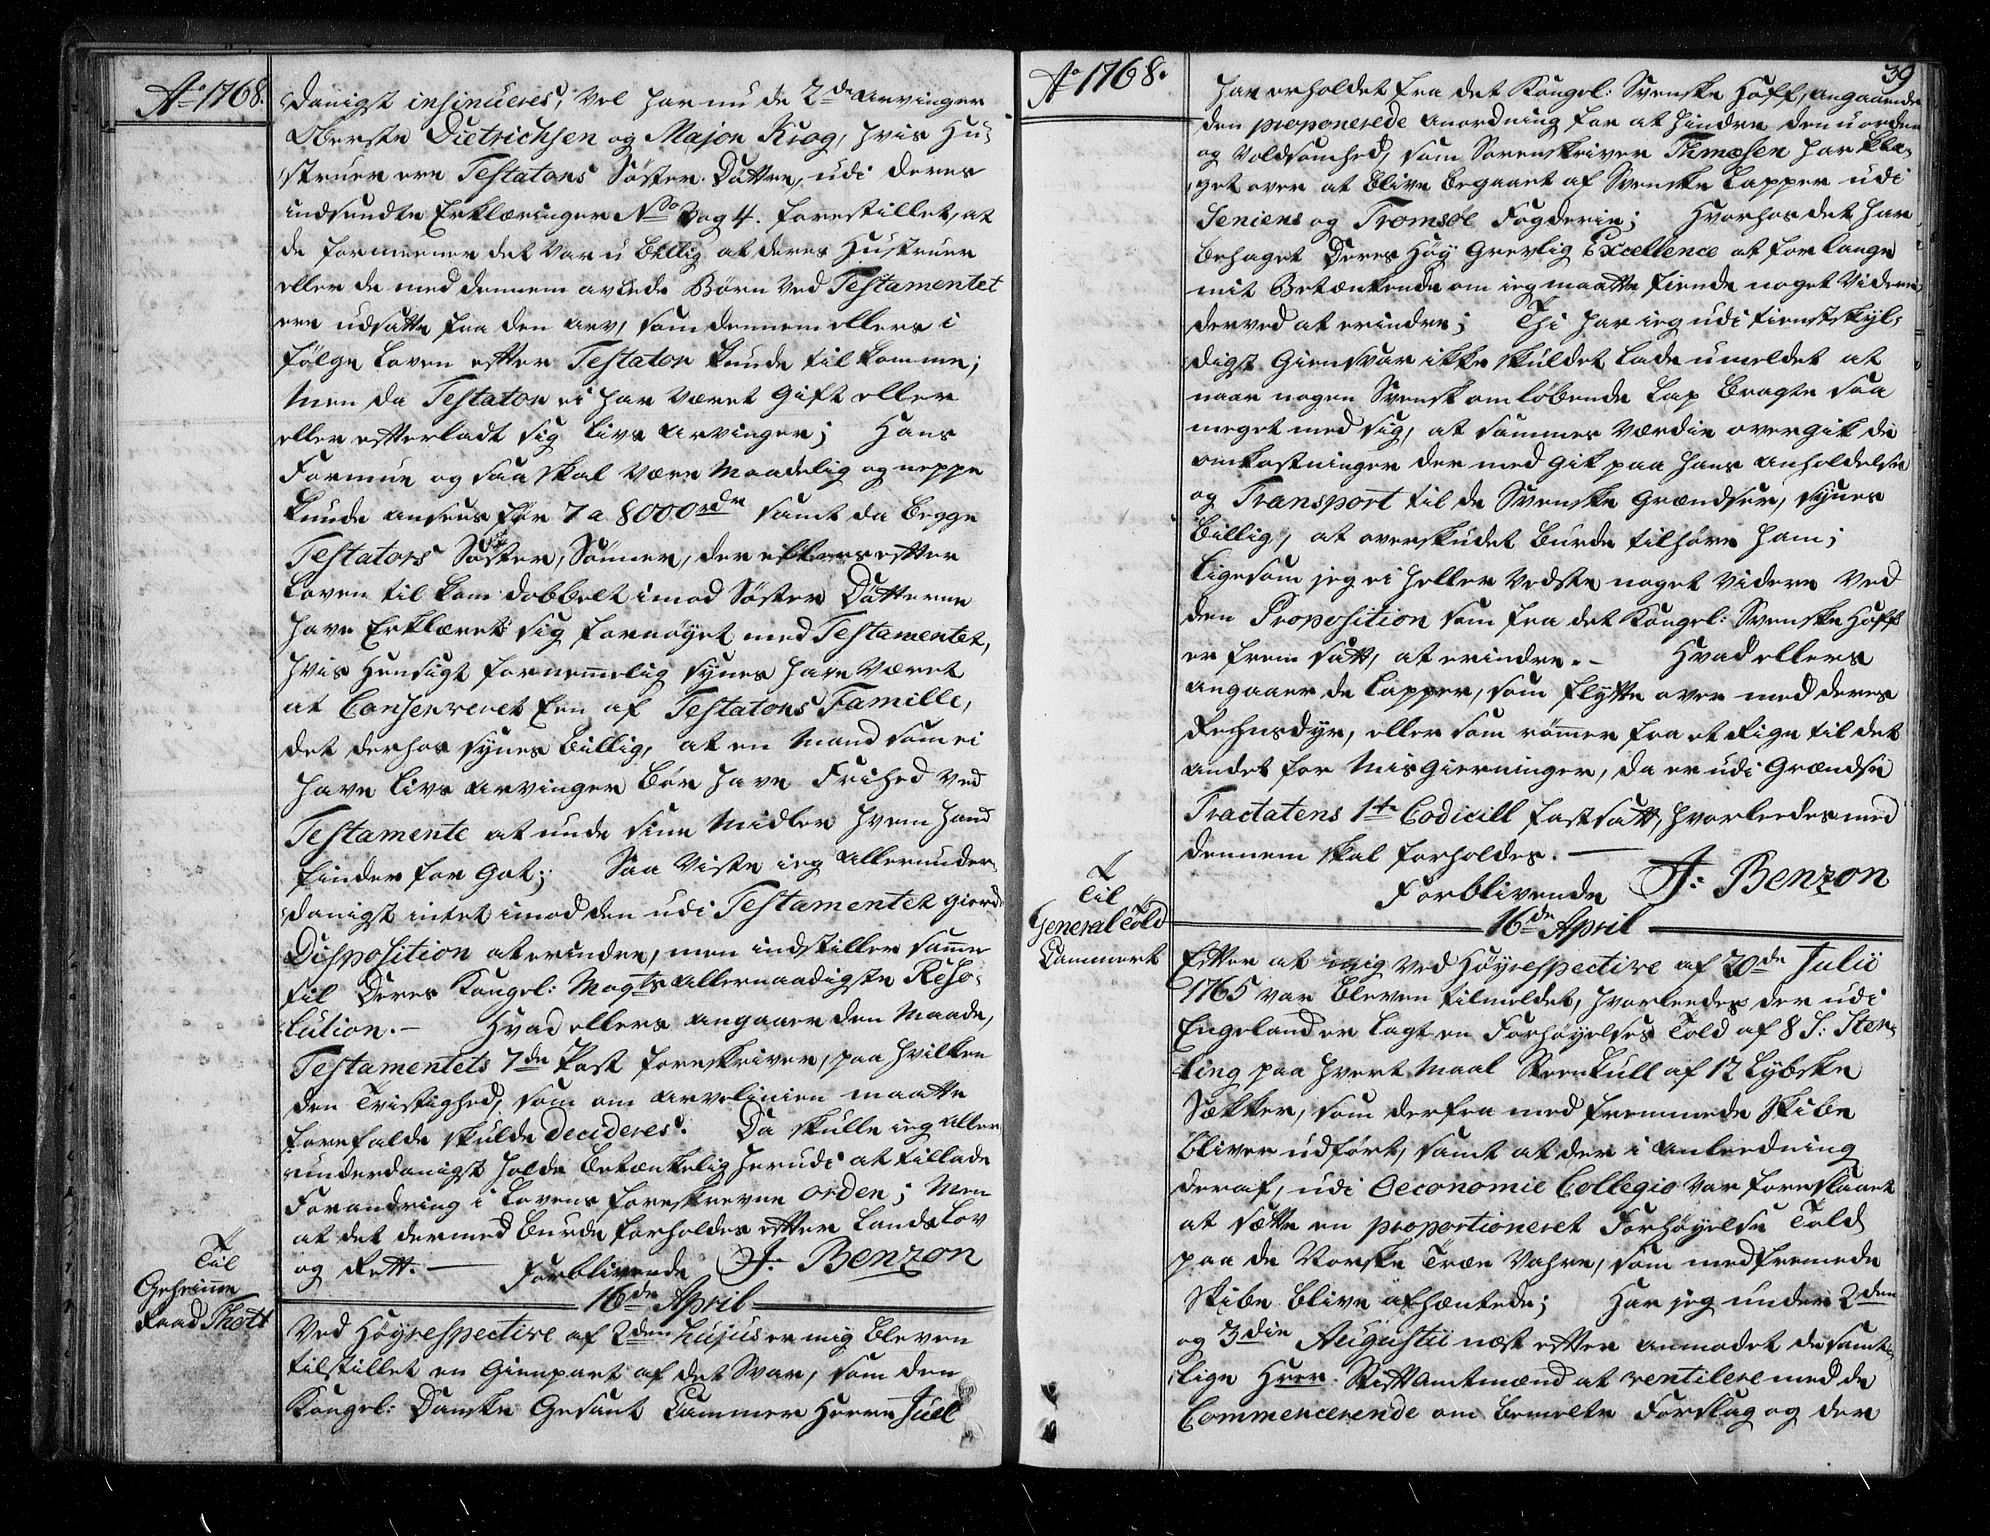 Ao 1768.
danigst insinueres, Vel har nu de 2de Arvinger
Oberste Dietrichsen og Major Krog, hvis Hu-
struer ere Testators Søster Døttre, udi deres
indsendte Erklæringer No 3 og 4. forestillet, at
de formeener det var u billig at deres Hustruer
eller de med dennem avlede Børn ved Testamentet
ere udsatte fra den Arv, som dennem ellers i
følge Loven efter Testator kunde tilkomme;
Men da Testator ei har været gift eller
eller efterladt sig Livs Arvinger; Hans
Formue og saa skal være maadelig og neppe
kunde ansees for 7 a 8000 rdr samt da begge
Testators Søster, Sønner, der ellers efter
Loven tilkom dobbelt imod Søster Døtterne
have Erklæret sig fornøyet med Testamentet,
hvis Hensigt fornemmelig synes have været
at Conserveret Een af Testators Famille,
det derhos synes billig, at en Mand som ei
have Livs Arvinger bør have Frihed ved
Testamente at unde sine Midler hvem hand
finder for got; Saa viste ieg allerunder-
danigst intet imod den udi Testamentet giorde
Disposition at erindre, men indstiller samme
til Deres Kongel: Mayts allernaadigste Reso-
lution. – Hvad ellers angaaer den Maade,
Testamentets 7de Post foreskriver, paa hvilken
den Tvistighed, som om arvelinien maatte
forefalde skulde decideres. Da skulle ieg aller-
underdanigst holde betænkelig herudi at tillade
Forandring i Lovens foreskrevne Orden; Men
at det dermed burde forholdes efter Lands Lov
og Rett. – Forblivende J: Benzon
16de April
Til
Geheime
Raad Thott
Ved Høyrespective af 2den hujus er mig bleven
tilstillet en Gienpart af det Svar, som den
Kongel: Danske Gesant Cammer Herre Juel
Ao 1768.
39
har erholdet fra det Kongel: Svenske Hoff, angaaende
den proponerede Anordning for at hindre den uorden
og Voldsomhed, som Sorenskriver Thmæsen har kla-
get over at blive begaaet af Svenske Lapper udi
Seniens og Tromsøe Fogderie; Hvorhos det har
behaget Deres Høy Grevlig Excellence at forlange
mit Betænkende om ieg maatte finde noget videre
derved at erindre; Thi har ieg udi tienstskyl-
digst Giensvar ikke skuldet lade umeldet at
naar nogen Svensk omløbende Lap bragte saa
meget med sig, at sammes Værdie overgik de
omkostninger der med gik paa hans anholdelse
og Transport til de Svenske Grændser, synes
billig, at overskudet burde tilhøre ham;
Ligesom jeg ei heller vedste noget videre ved
den Proposition som fra det Kongel: Svenske Hoff
er frem satt, at erindre. – Hvad ellers
angaaer de Lapper, som flytte over med deres
Rehnsdyr, eller som rømmer fra et Rige til det
andet for Misgierninger, da er udi Grændse
Tractatens 1te Codicill fastsatt, hvorleedes med
dennem skal forholdes. –
Forblivende J: Benzon
16de April
Til
General Told
Cammeret
Efter at mig ved Høyrespective af 20de Julii
1765 var bleven tilmeldet, hvorleedes der udi
Engeland er lagt en Forhøyelses Told af 8 S: Ster-
ling paa hvert Maal Steenkull af 12 Lybske
Sækker, som derfra med fremmede Skibe
bliver udført, samt at der i Anleedning
deraf, udi Oeconomie Collegio var foreslaaet
at sætte en proportioneret Forhøyelse Told
paa de Norske Træe Vahre, som med fremede
Skibe blive afhæntede; Har jeg under 2den
og 3die Augustii næst efter anmodet de samt-
lige Herr. Stiftamtmænd at ventilere med de
Commencerende om bemelte Forslag og der